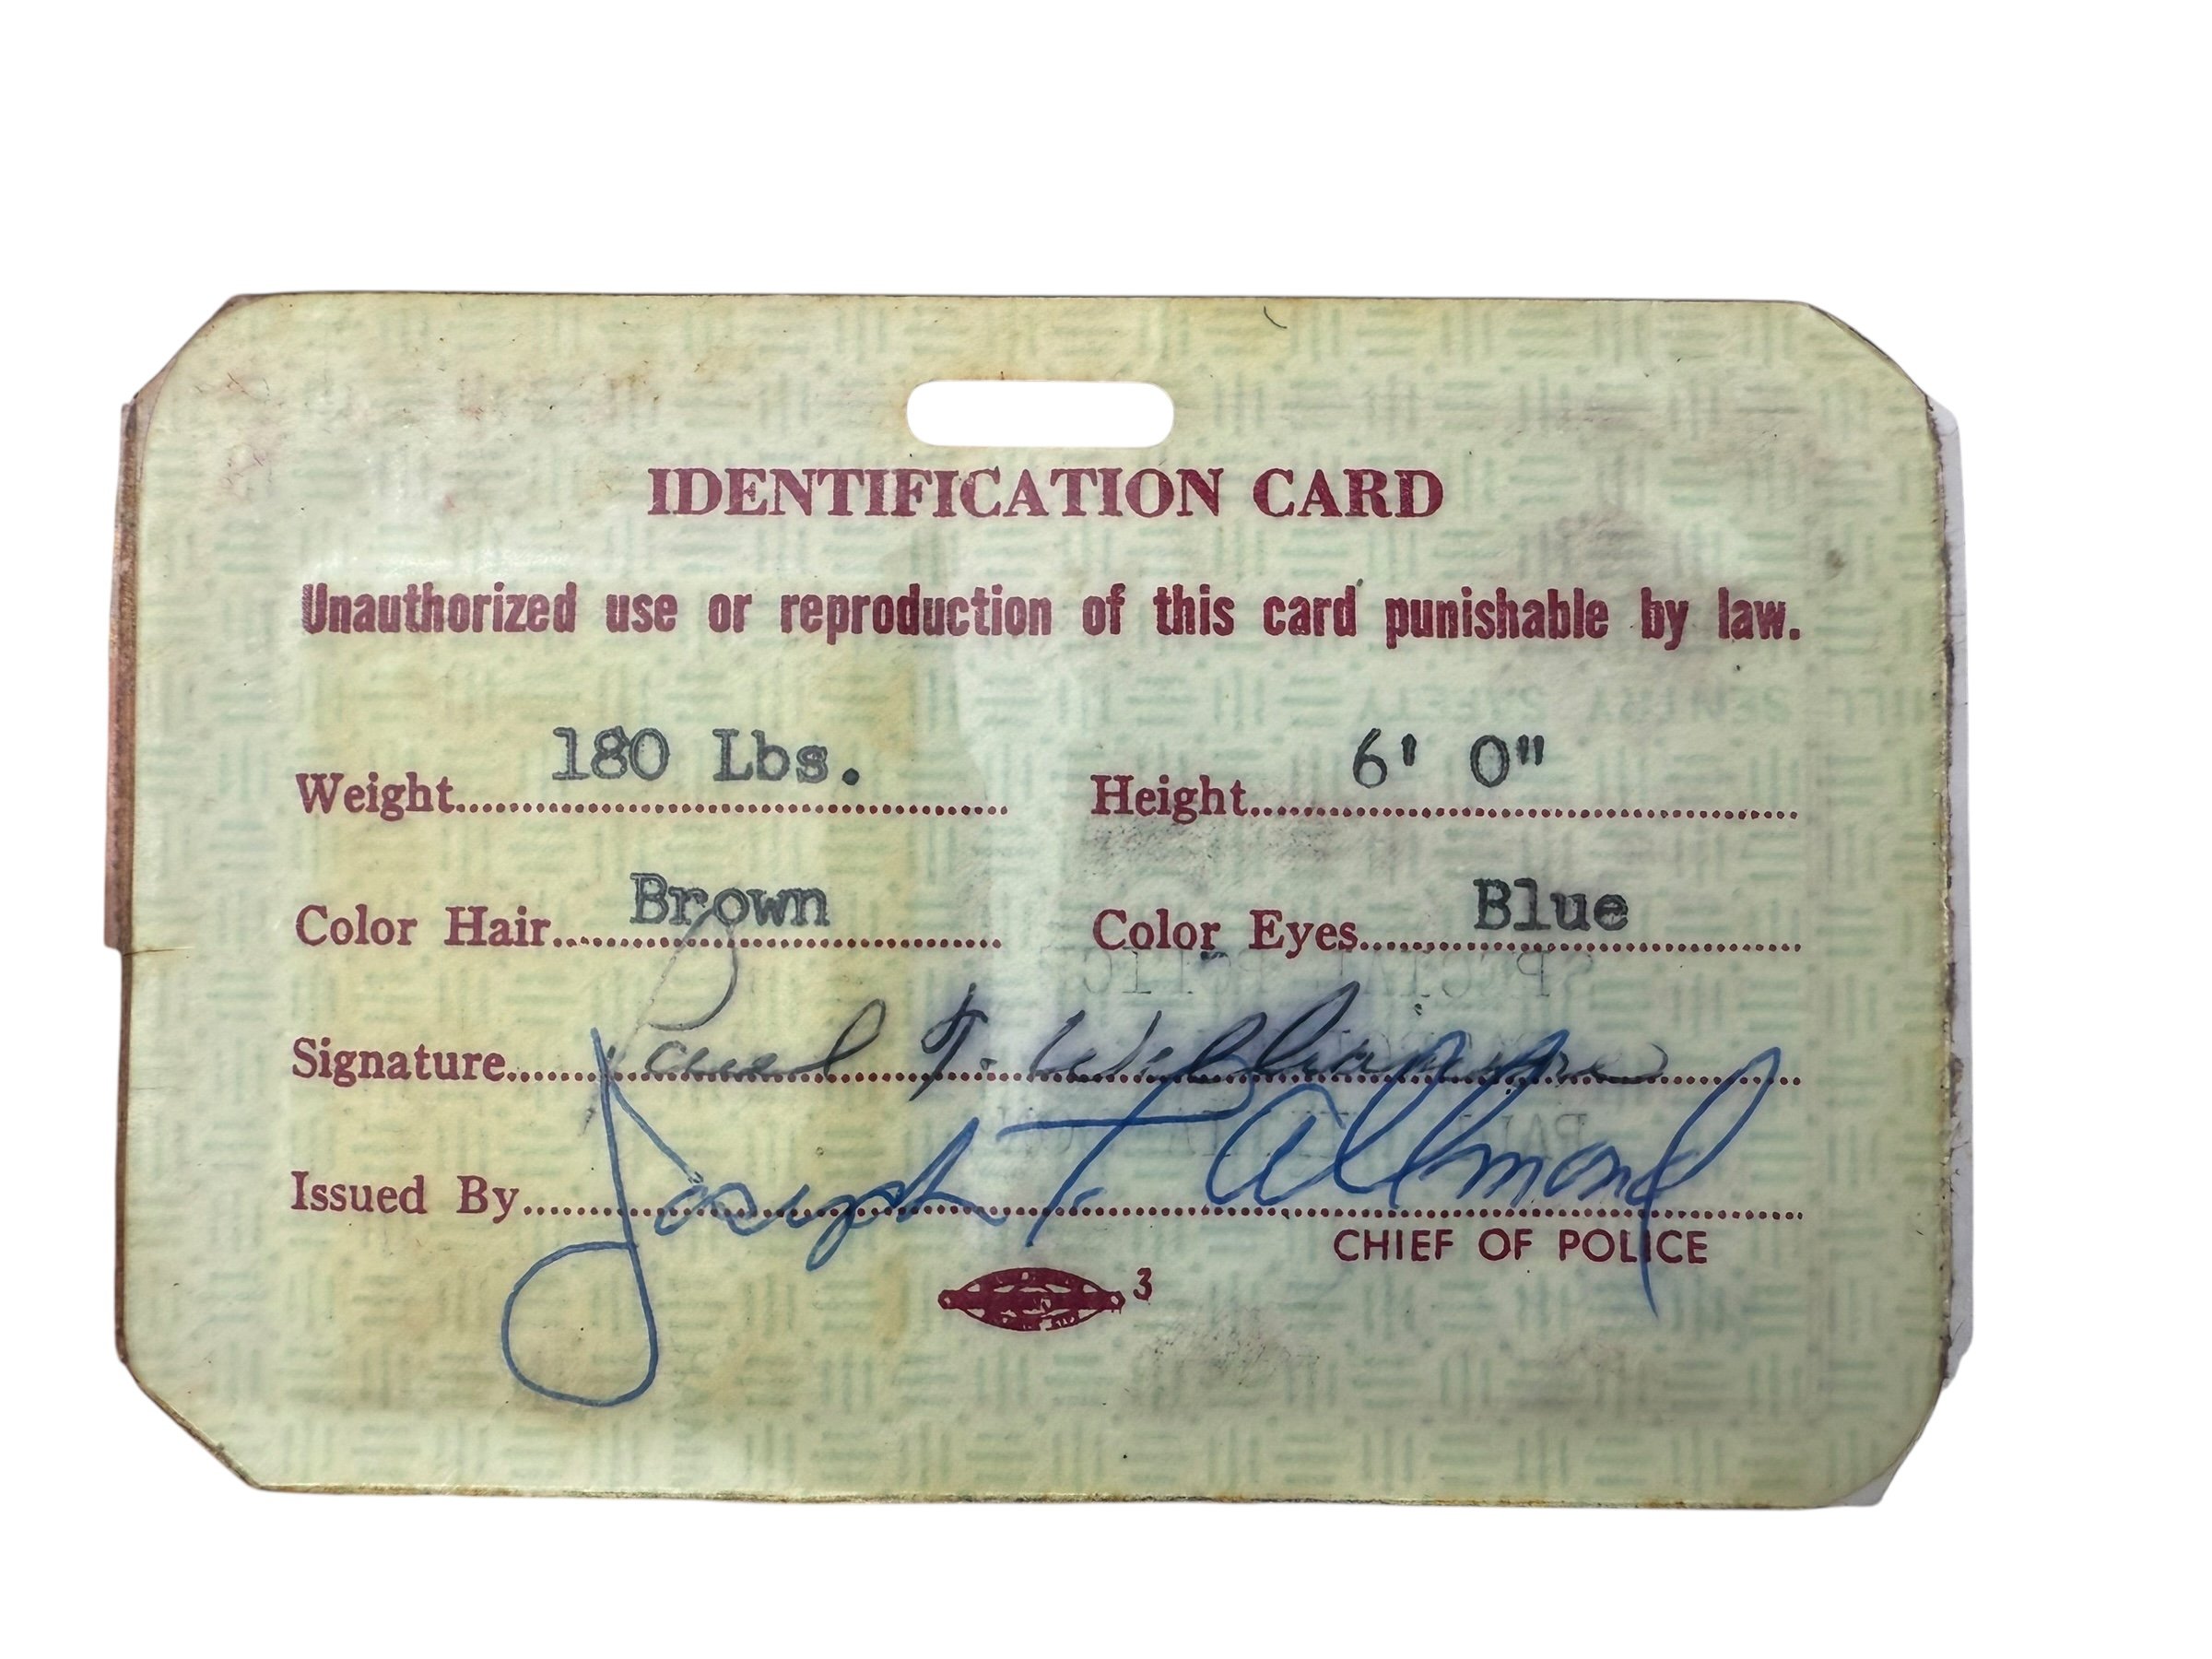 IDENTIFICATION CARD
Unauthorized use or reproduction of this card punishable by law.
Weight 180 Lbs. Height 6' 0"
Color Hair Brown Color Eyes Blue
Signature Paul F. Williams
Issued By Joseph T. Allmond
CHIEF OF POLICE
3